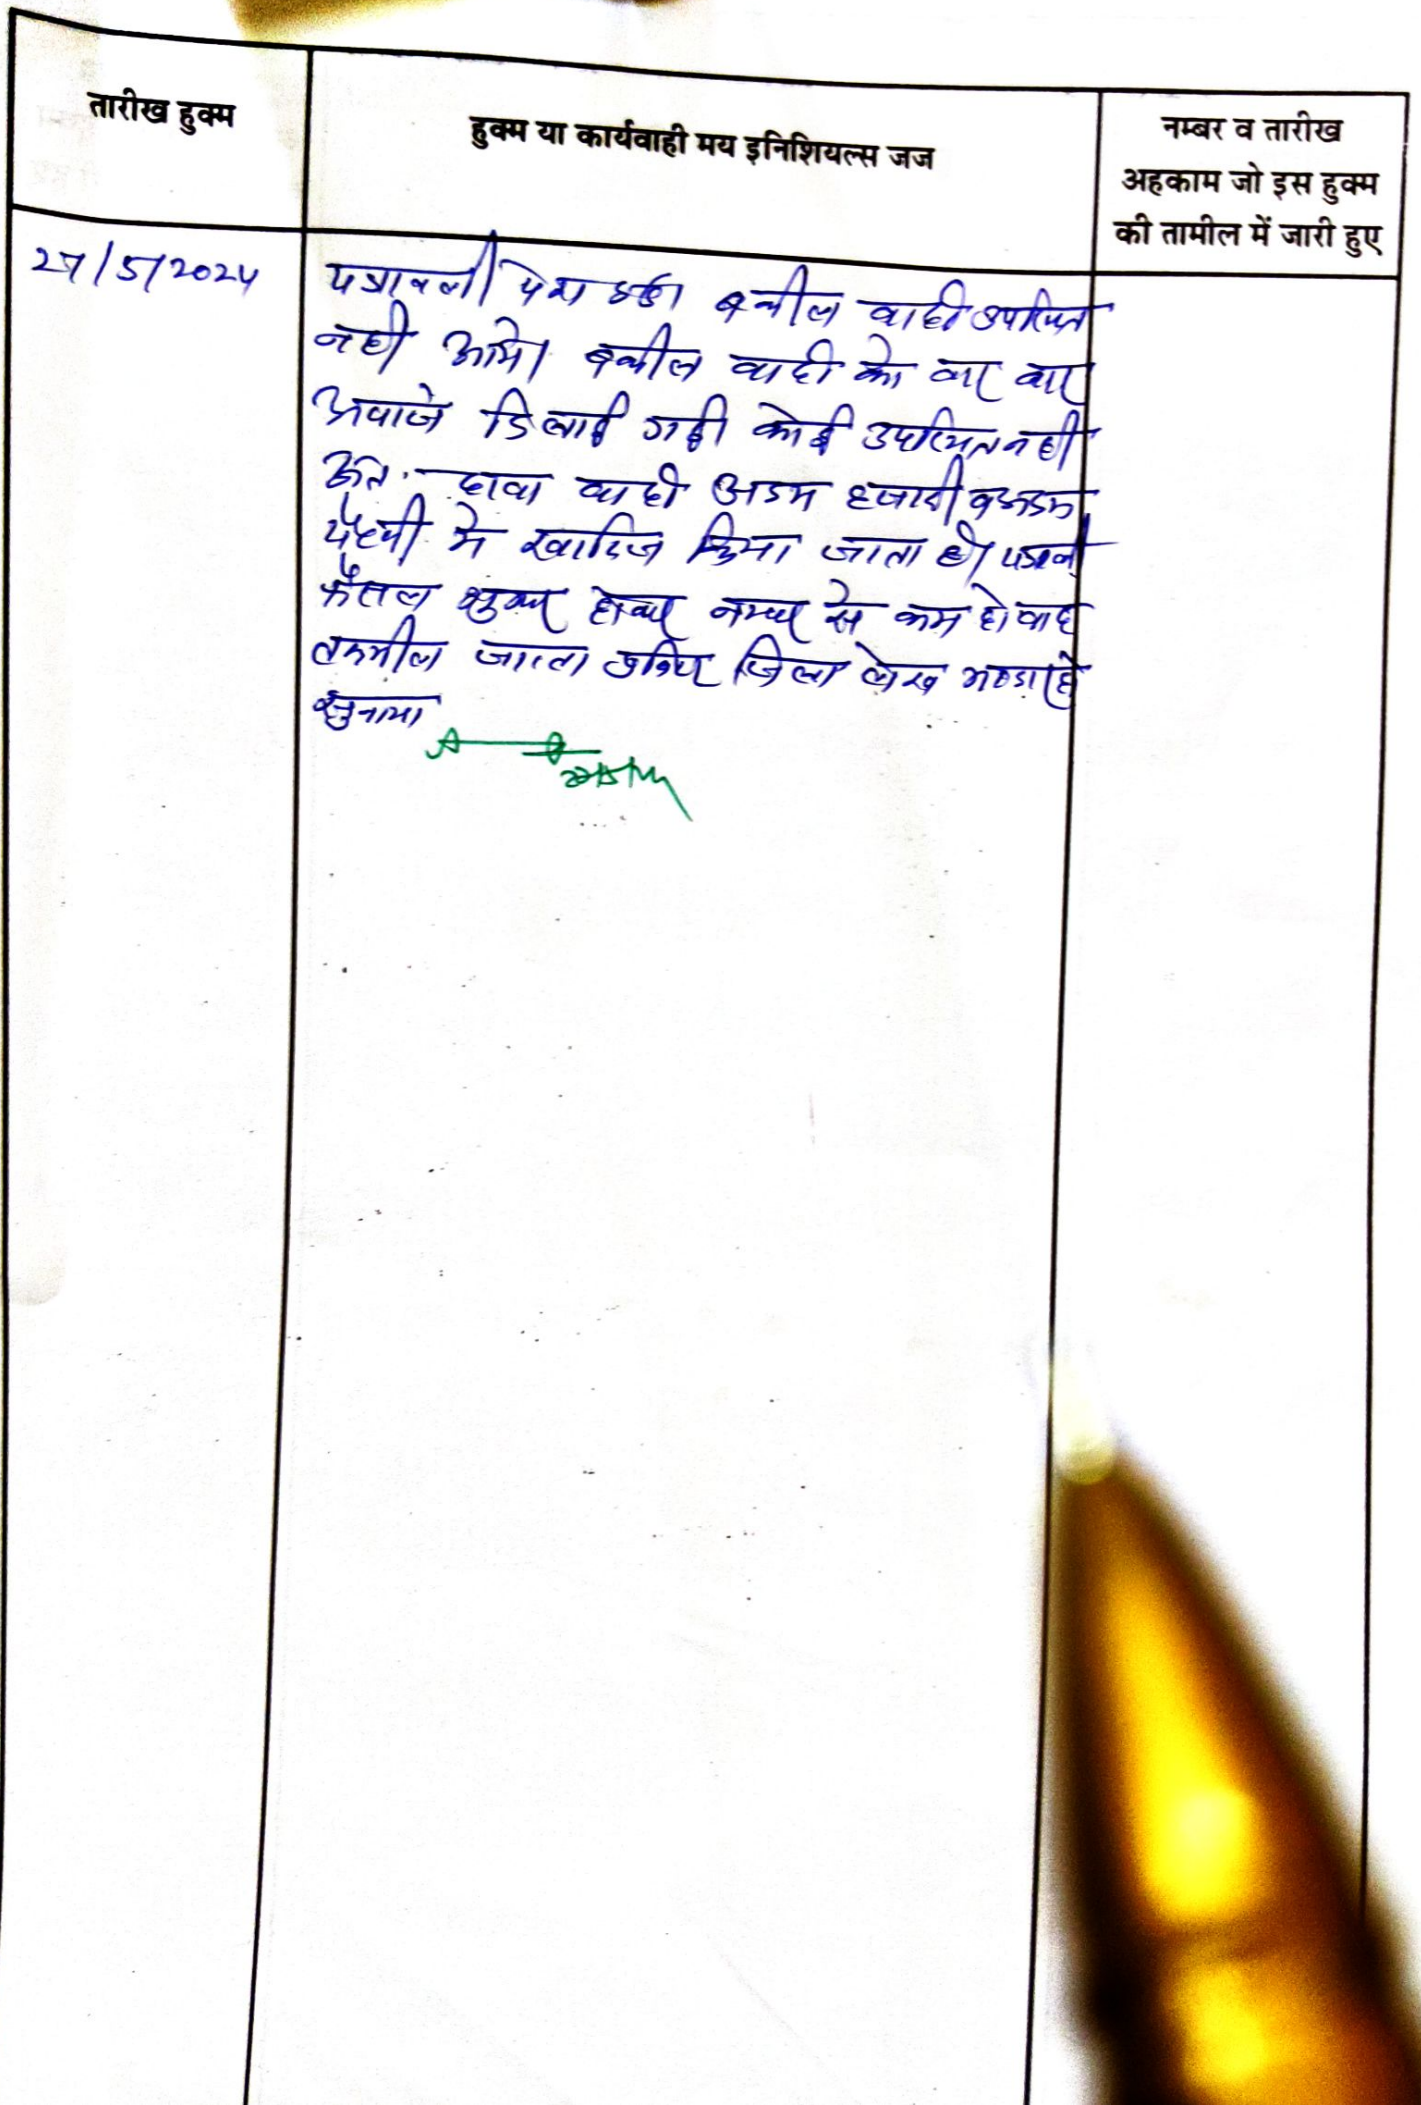 तारीख हुक्म
हुक्म या कार्यवाही मय इनिशियल्स जज
नम्बर व तारीख
अहकाम जो इस हुक्म
की तामील में जारी हुए
27/5/2024
पत्रावली पेश हुई। वकील वादी उपस्थित
नही आये। वकील वादी को बार बार
अवाजे दिलाई गई कोई उपस्थित नही
अतः दावा वादी अदम हजारी व अदम
पैरवी मे खारिज किया जाता है।
फैसल शुमार होकर नम्बर से कम हो बाद
तकमील जाप्ता जिला लेख भण्डार हो
सुनाया